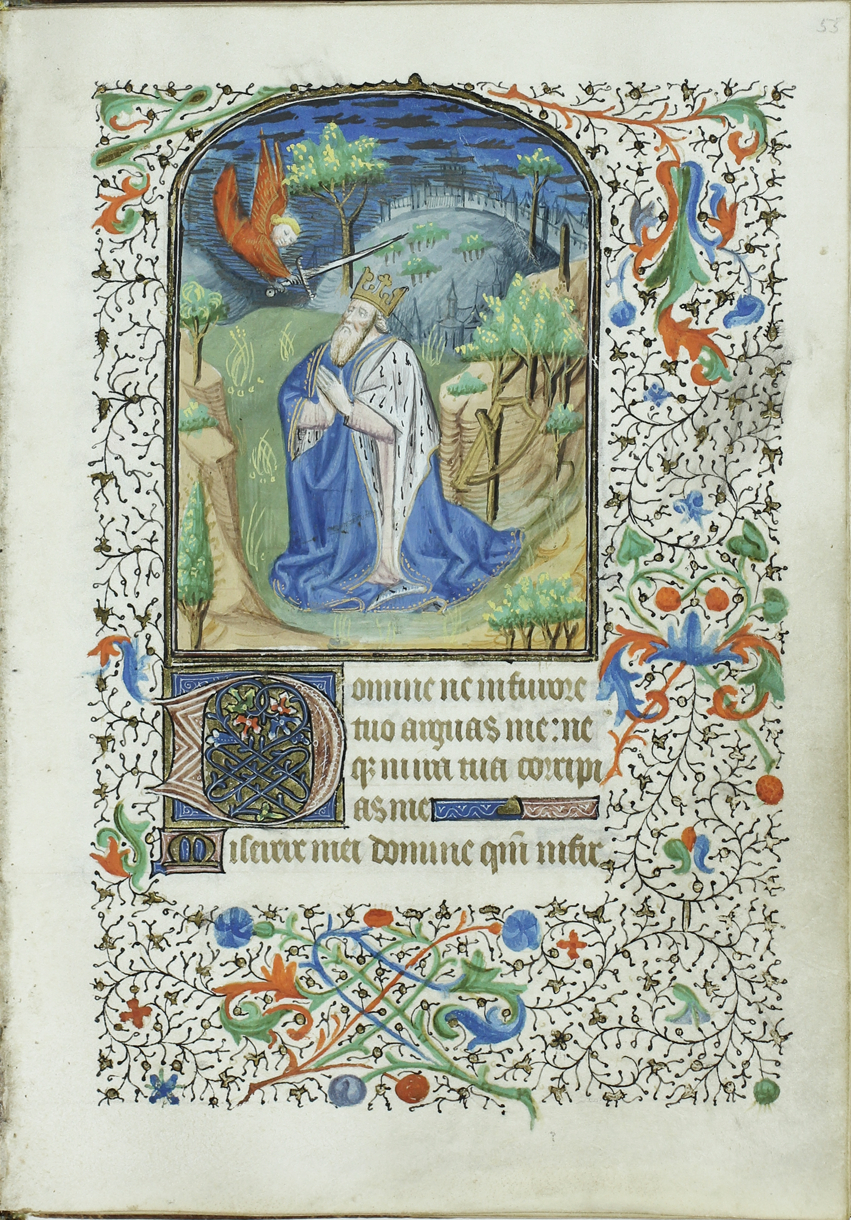 55
Domine ne in furore
tuo arguas me: ne
qꝫ in ira tua corripi
as me
Miserere mei domine qm̄ infir